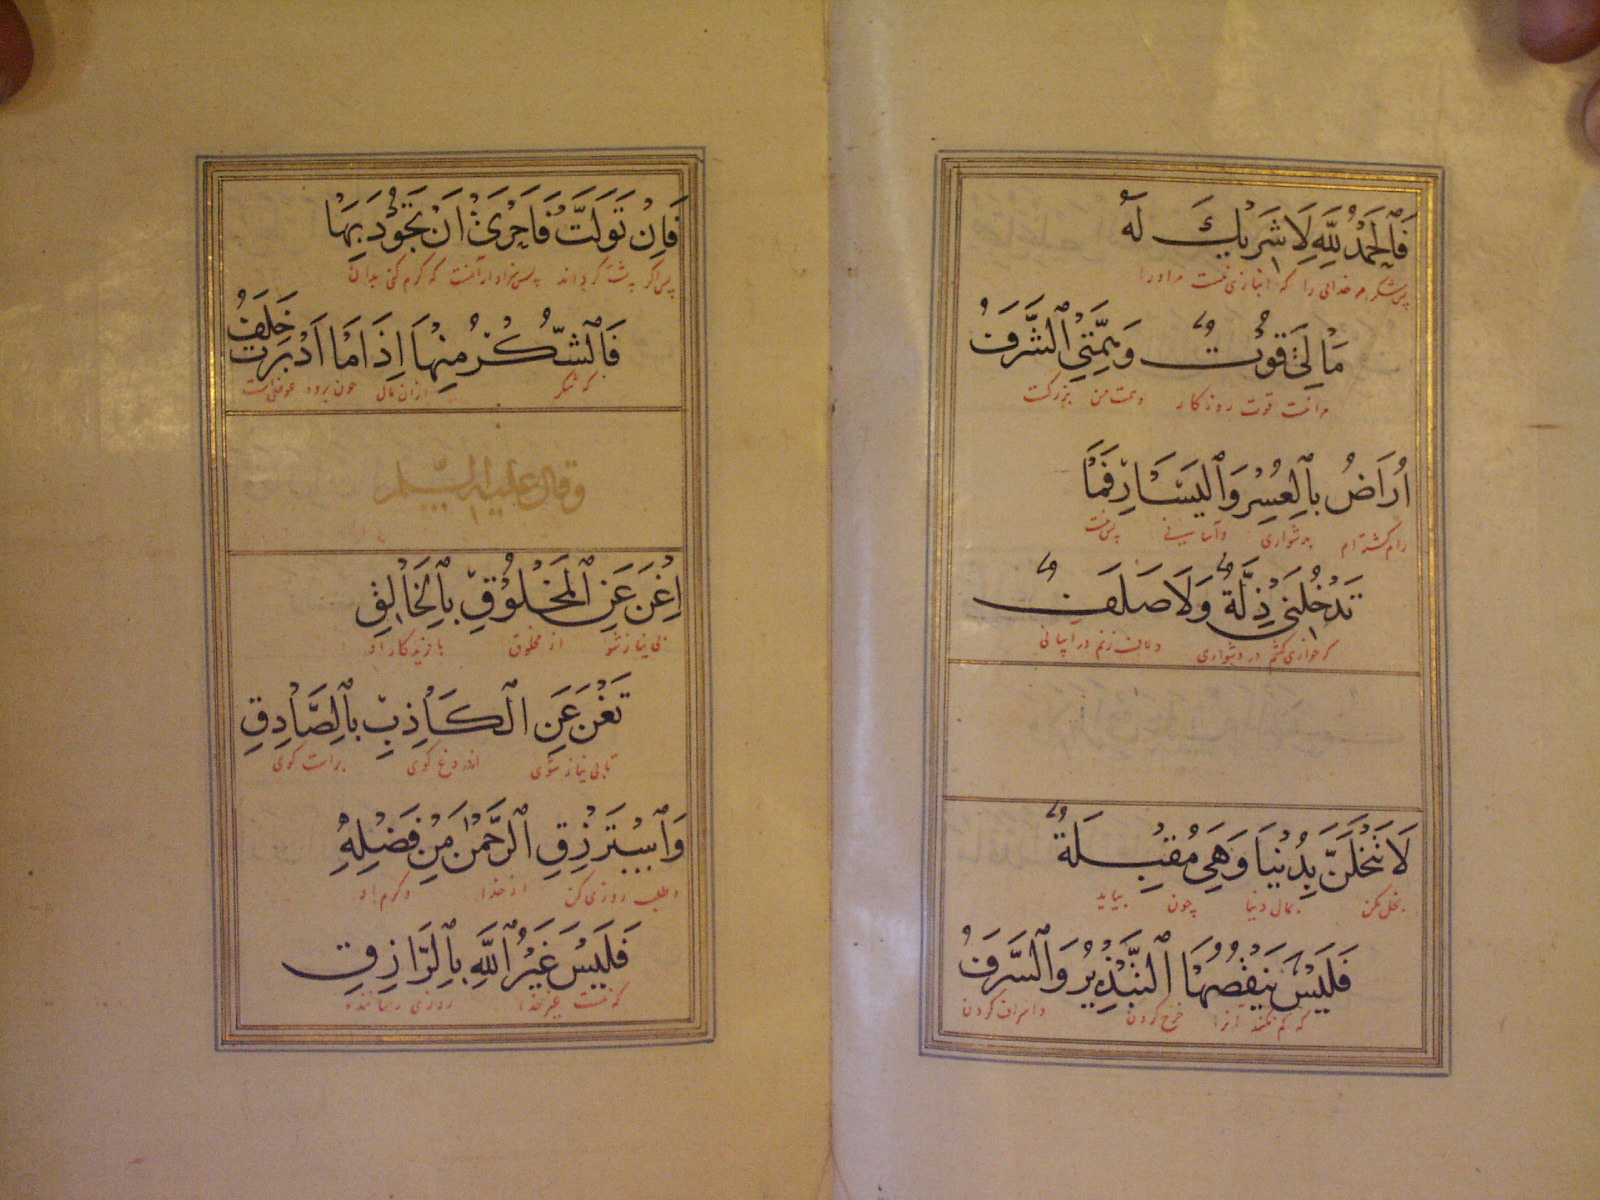 فَٱلْحَمْدُ لِلّٰهِ لَا شَرِيْكَ لَهُ
پس شکر مر خدایی را که انبازی نیست مر او را
مَا لِيَ قُوتٌ وَهِمَّتِي ٱلشَّرَفُ
مرا نیست قوت روزکار وهمت من بزرگیست
اُرَاضُ بِٱلْعُسْرِ وَٱلْيَسَارِ فَمَا
رام گشته ام بدشواری وآسانی پس نیست
تَدْخُلُنِي ذِلَّةٌ وَلَا صَلَفٌ
که خواری کشم در دشواری ولاف زنم در آسانی
لَا تَبْخَلَنَّ بِدُنْيَا وَهِيَ مُقْبِلَةٌ
بخل مکن بمال دنیا چون بیاید
فَلَيْسَ يَنْقُصُهَا ٱلتَّبْذِيرُ وَٱلسَّرَفُ
که کم نکند آنرا خرج کردن واسراف کردن
فَاِنْ تَوَلَّتْ فَاَحْرَىٰ اَنْ تَجُوْدَ بِهَا
پس اگر پشت گرداند پس سزاوار آنست که کرم کنی بدان
فَٱلشُّكْرُ مِنْهَا اِذَا مَا اَدْبَرَتْ خَلَفُ
که شکر ازان مال چون برود عوض است
وقال عليه السلم
اِغْنَ عَنِ ٱلْمَخْلُوْقِ بِٱلْخَالِقِ
بی نیاز شو از مخلوق بافریدکار او
تَغْنَ عَنِ ٱلْكَاذِبِ بِٱلصَّادِقِ
تا بی نیاز شوی از دروغ کوی براست کوی
وَٱسْتَرْزِقِ ٱلرَّحْمٰنَ مِنْ فَضْلِهِ
وطلب روزی کن از خدا وکرم او
فَلَيْسَ غَيْرُ ٱللّٰهِ بِٱلرَّازِقِ
که نیست غیر خدا روزی رساننده